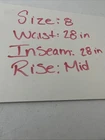 Size: 8
Waist: 28 in
Inseam: 28 in
Rise: Mid